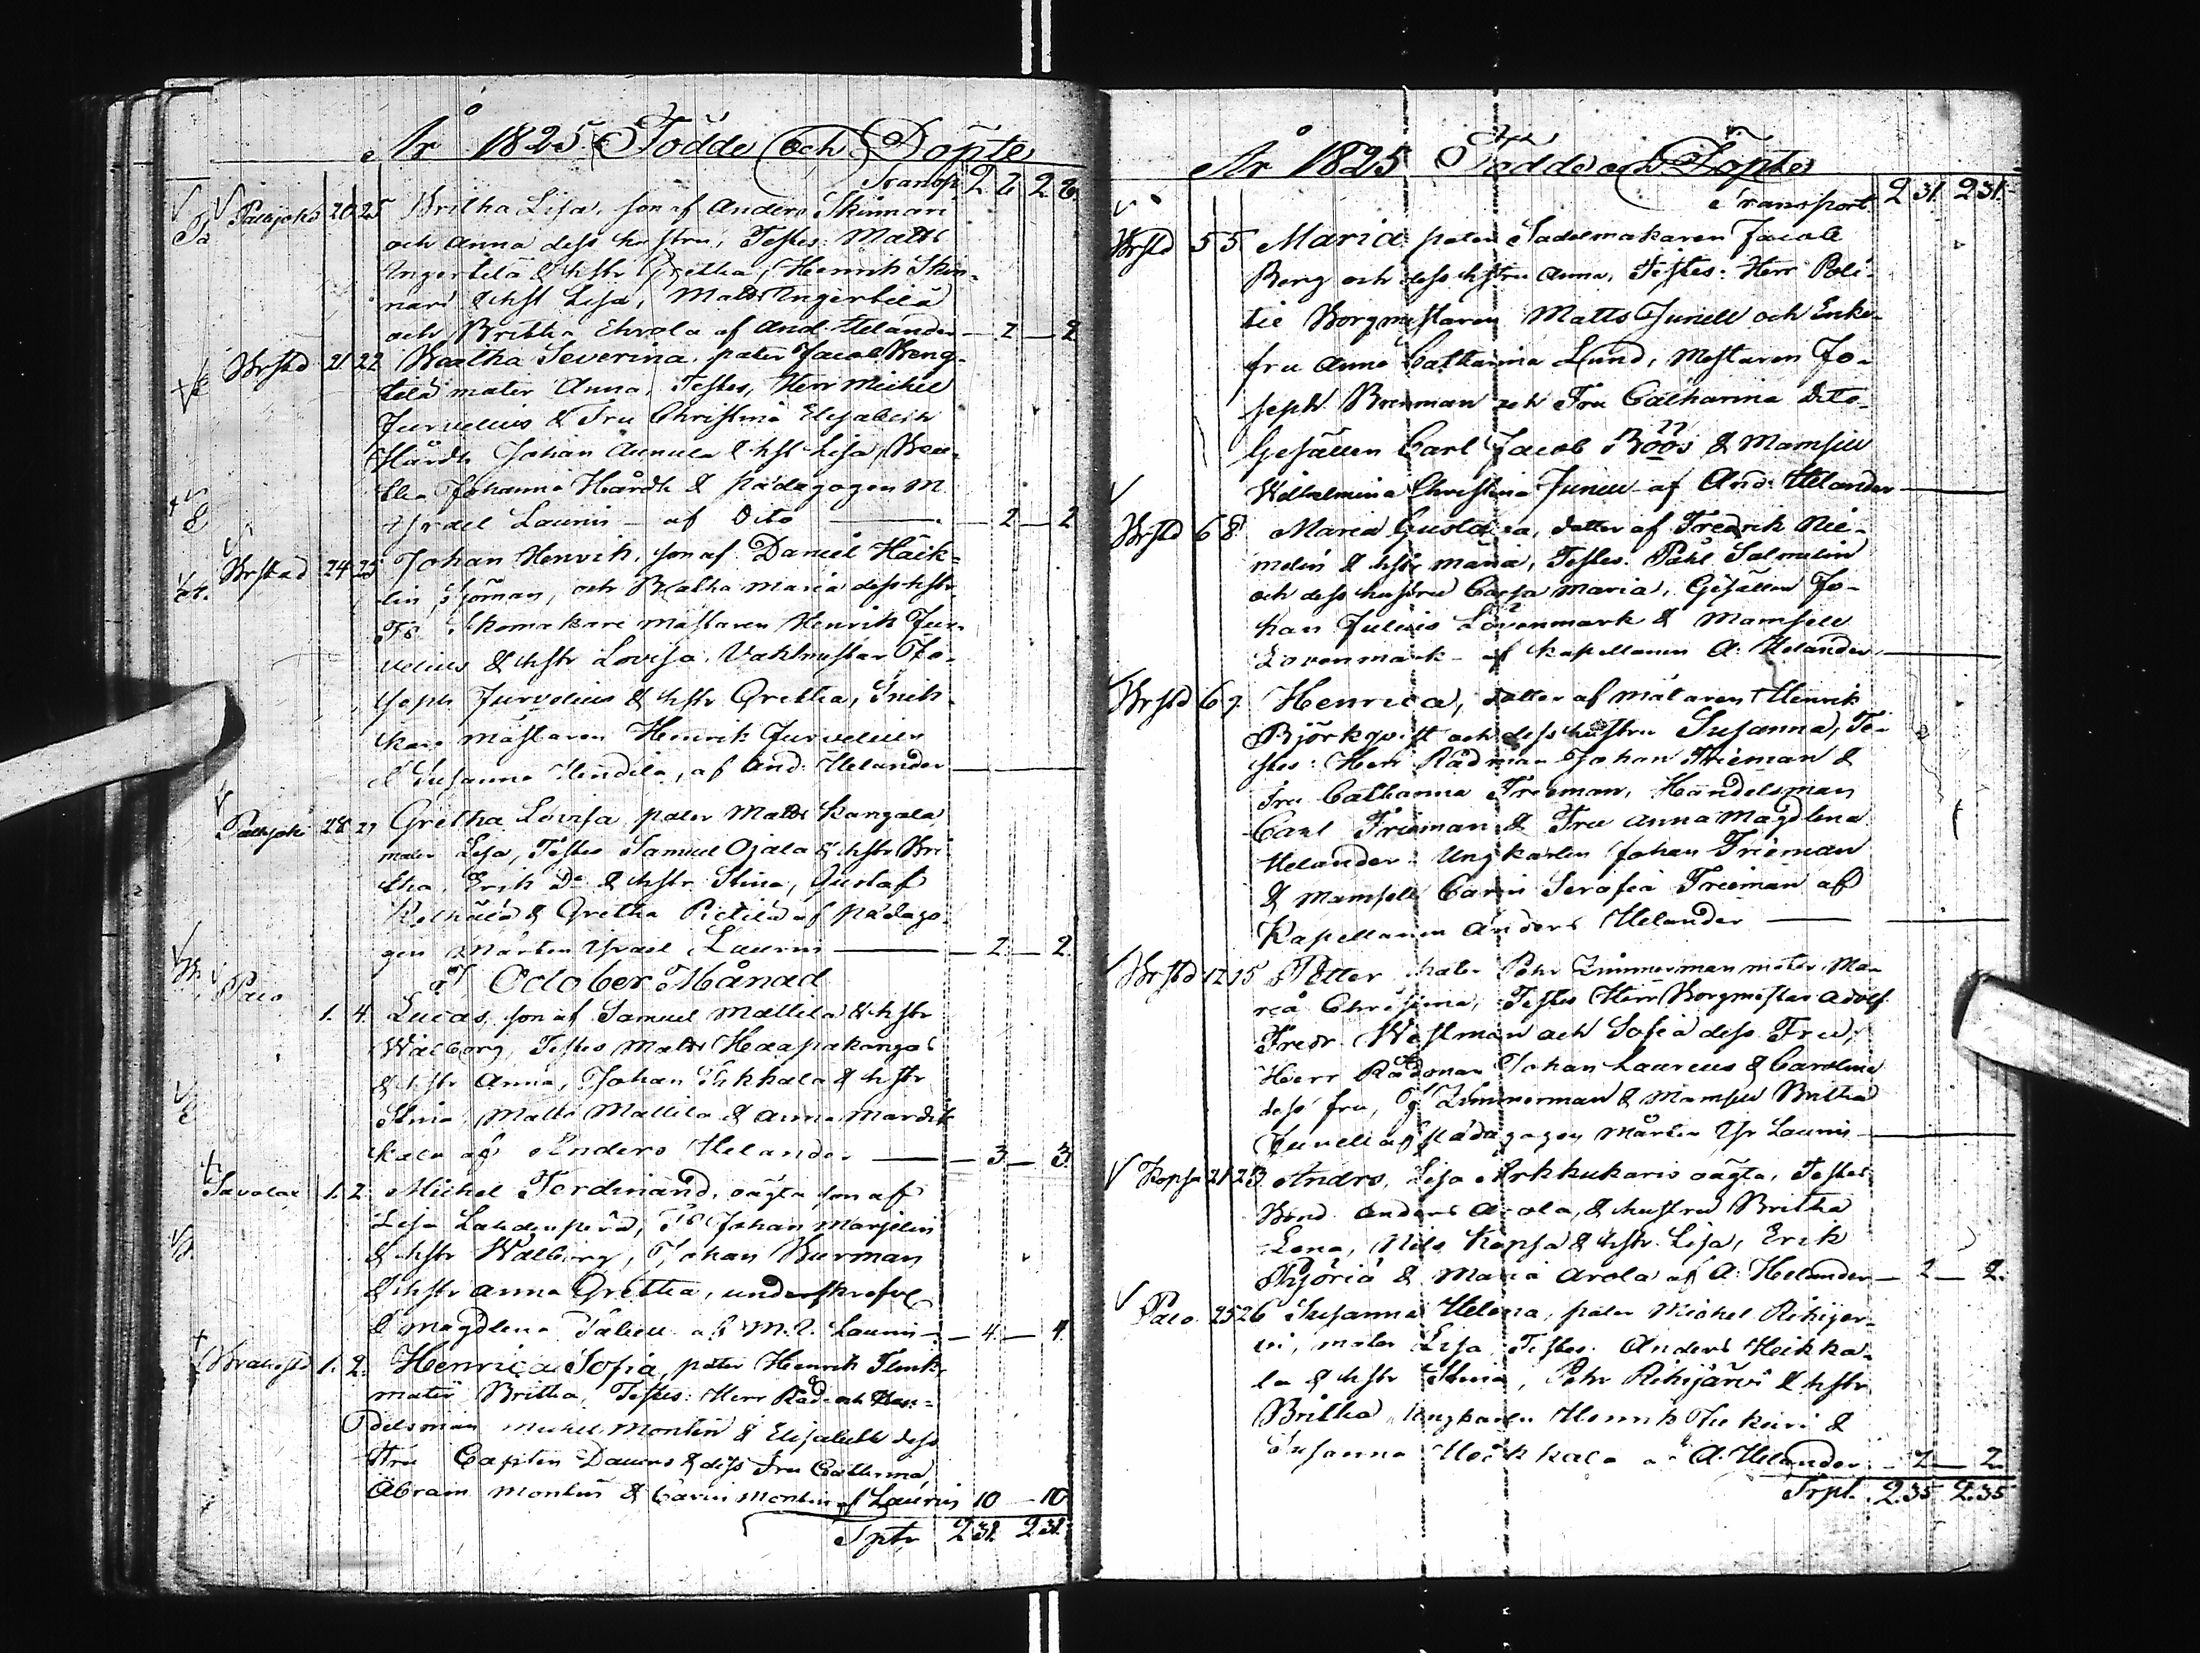 År 1825 Födde och Döpte
Transp. 2 2
Pattijoki 20 25 Britha Lisa, son af Anders Skinnari
och Anna dess hustru, Testes: Matts
& hstr Gretha, Henrik Skin-
nari & hst Lisa, Matts
och Britha af And. Helander — 2 — 2
Brstd 21 22 Beatha Severina, pater Jacob
mater Anna, Testes, Herr Michel
Jurvelius & Fru Christina Elisabeth
Hårdh Johan Annula & hst Lisa, Bea-
tha Johanna Hårdh & pädagogen M.
Israel Laurin — af Dito — 2 — 2
Brstad 24 25 Johan Henrik, son af Daniel Häik-
lin, Sjöman, och Beatha Maria dess hstr.
Ts Skomakare mästaren Henrik Jur-
velius & hstr Lovisa, Vaktmestar Jo-
seph Jurvelius & hstr Gretha, Snik-
kare mästaren Henrik Jurvelius
& Susanna Hendela, af And: Helander —
Pattijoki 28 29 Gretha Lovisa pater Matts Kangala
mater Lisa, Testes Samuel Ojala & hstr Bri-
tha, Erik Do & hstr Stina, Gustaf
& Gretha Pietilä af pädago-
gen Mårten Israel Laurin — 2 — 2
October Månad
Palo
1. 4. Lucas, son af Samuel Mattila & hstr
Walborg, Testes Matts Haapakangas
& hstr Anna, Johan & hstr
Stina, Matts Mattila & Anna
af Anders Helander — 3 — 3.
Savolax 1. 2. Michel Ferdinand, oägta son af
Lisa, Ts Johan Marjelin
& hstr Walborg, Johan Burman
& hstr Anna Gretha, underskrefve
& Magdlena af M. I. Laurin — 4 — 4.
Brahestd 1. 2. Henrica Sofia, pater Henrik Flink,
mater Britha, Testes: Herr Råd- och Han-
delsman Michel Montin & Elisabeth dess
Fru Capiten & dess Fru Catharina
Abram Montin & Carin Montin af Laurin 10 — 10
Sptr 231. 231.
År 1825 Födde och Döpte
Transport. 231. 231.
Brstd 5 5 Maria, pater Sadelmakaren Jacob
Berg och dess hstru Anna, Testes: Herr Poli-
tie Borgmestaren Matts Junell och Enke-
fru Anna Catharina Lund, Mestaren Jo-
seph Brenman och Fru Catharina Dito
Gesällen Carl Jacob Böös & Mamsell
Wilhelmina Christina Junell af And: Helander —
Brstd 6 8 Maria Gustava, dotter af Fredrik Nie-
melin & hstr Maria, Testes: Påhl Salmelin
och dess hustru Caisa Maria, Gesällen Jo-
han Julius Lövenmark & Mamsell
Lövenmark — af Kapellanen A: Helander —
Brstd 6 9. Henrica, dotter af målaren Henrik
Björkqvist och dess hustru Susanna, Te-
stes: Herr Rådman Johan Frieman &
Fru Catharina Frieman, Handelsman
Carl Frieman & Fru Anna Magdlena
Helander. Ungkarlen Johan Frieman
& Mamsell Carin Serafia Frieman af
Kapellanen Anders Helander —
Brstd 12 15 Petter, pater Pehr Zimmerman mater Ma-
ria Christina, Testes Herr Borgmestar Adolf
Fredr Westman och Sofia dess Fru,
Herr Rådman Johan Laureus & Carolina
dess fru, G Zimmerman & Mamsell Britha
Junell af pädagogen Mårten Isr Laurin —
Kopsa 21 23 Andrs, Lisa Arkkukaris oägta, Testes
Bond Anders Arola, & hustru Britha
Lena, Nils Kopsa & hstr. Lisa, Erik
& Maria Arola af A: Helander — 2 — 2.
Palo. 25 26 Susanna Helena, pater Michel Rihijer-
vi, mater Lisa, Testes. Anders Heikka-
la & hstr Stina, Pehr Rihijärvi & hstr
Britha, ungkarlen Henrik &
Susanna Heikkala af A. Helander — 2 — 2.
Trpt. 235 235